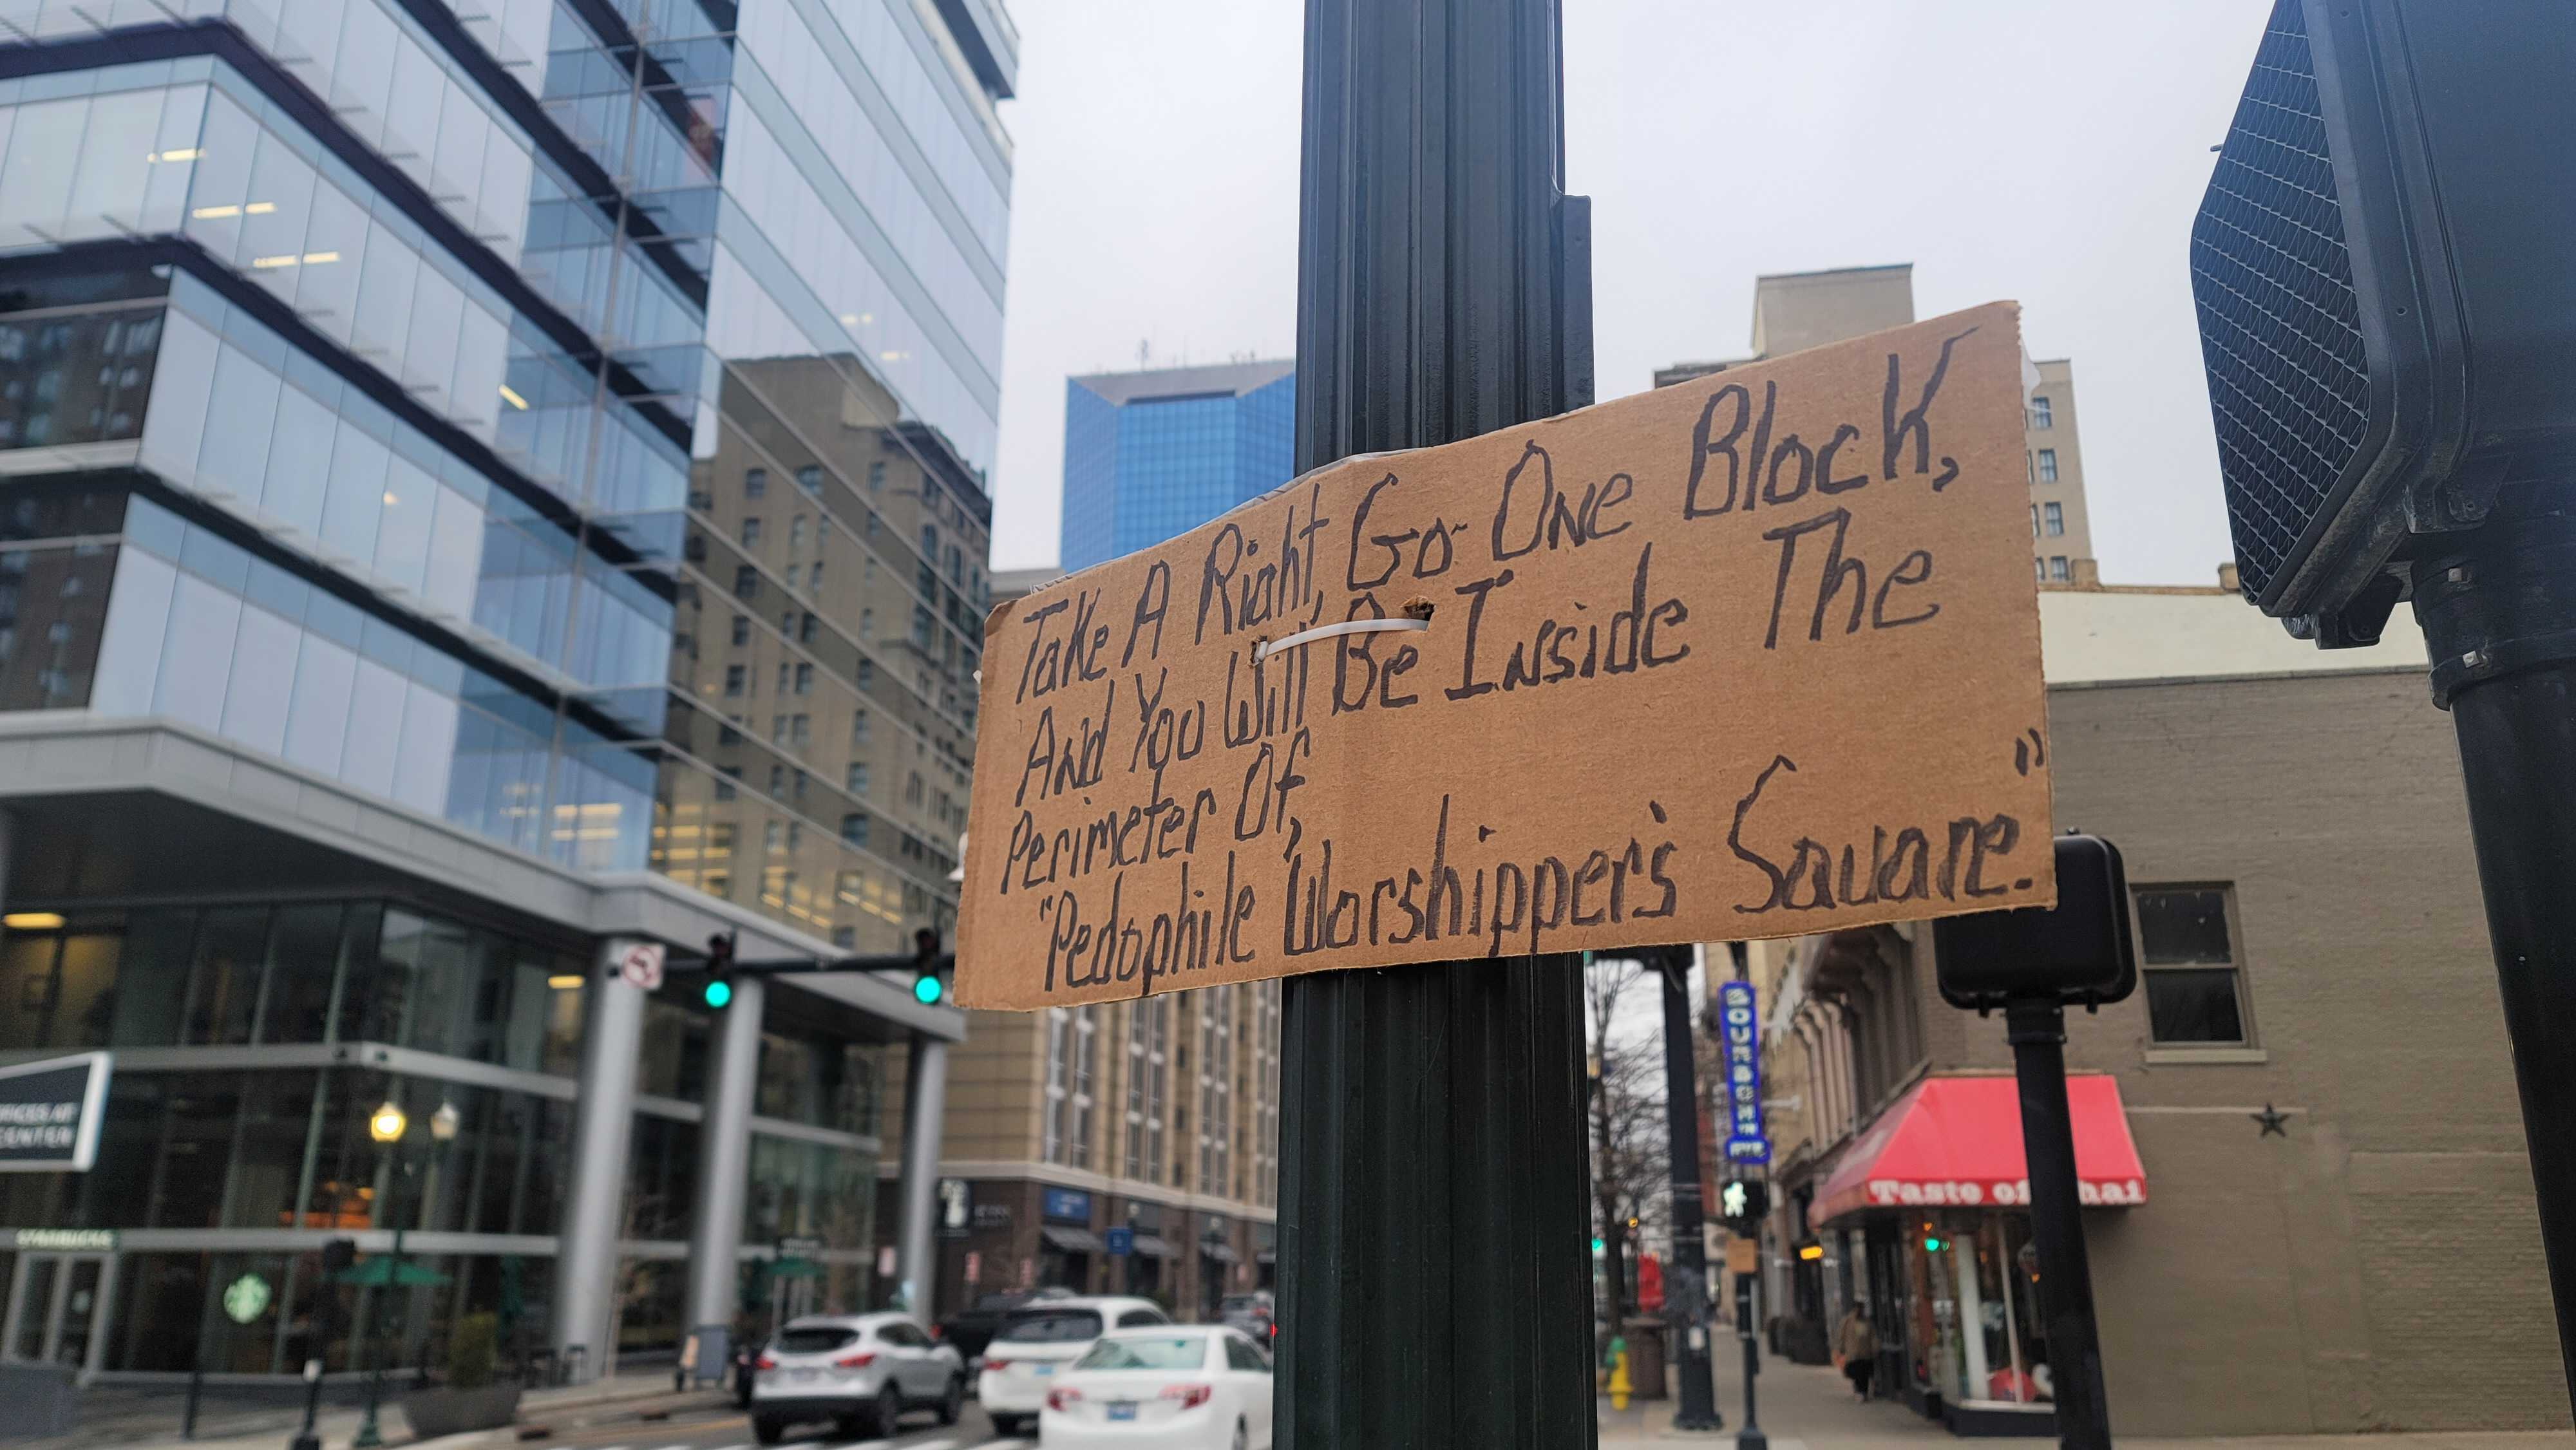 Take A Right, Go One Block,
And You Will Be Inside The
Perimeter Of,
"Pedophile Worshipper's Square."
BOURBON
Taste of Thai
CENTER
STARBUCKS